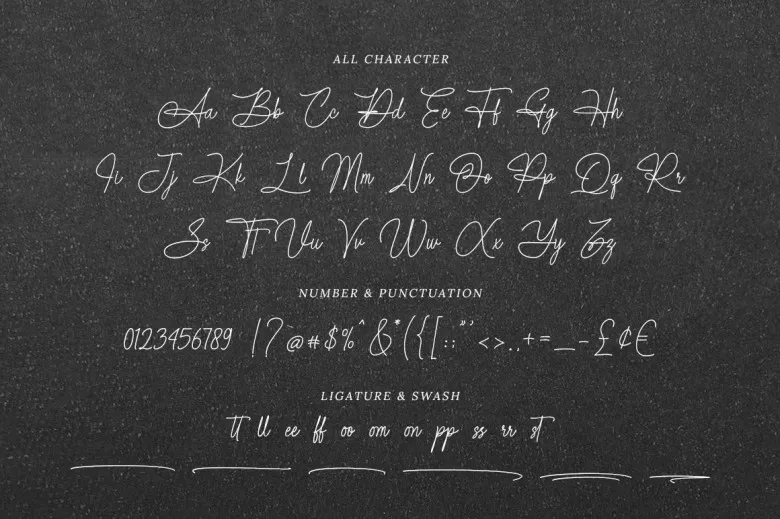 ALL CHARACTER
Aa Bb Cc Dd Ee Ff Gg Hh
Ii Jj Kk Ll Mm Nn Oo Pp Qq Rr
Ss Tt Uu Vv Ww Xx Yy Zz
NUMBER & PUNCTUATION
0123456789 !?@#$%^&*({[::"'<>.,+=_-£¢€
LIGATURE & SWASH
tt ll ee ff oo om on pp ss rr st